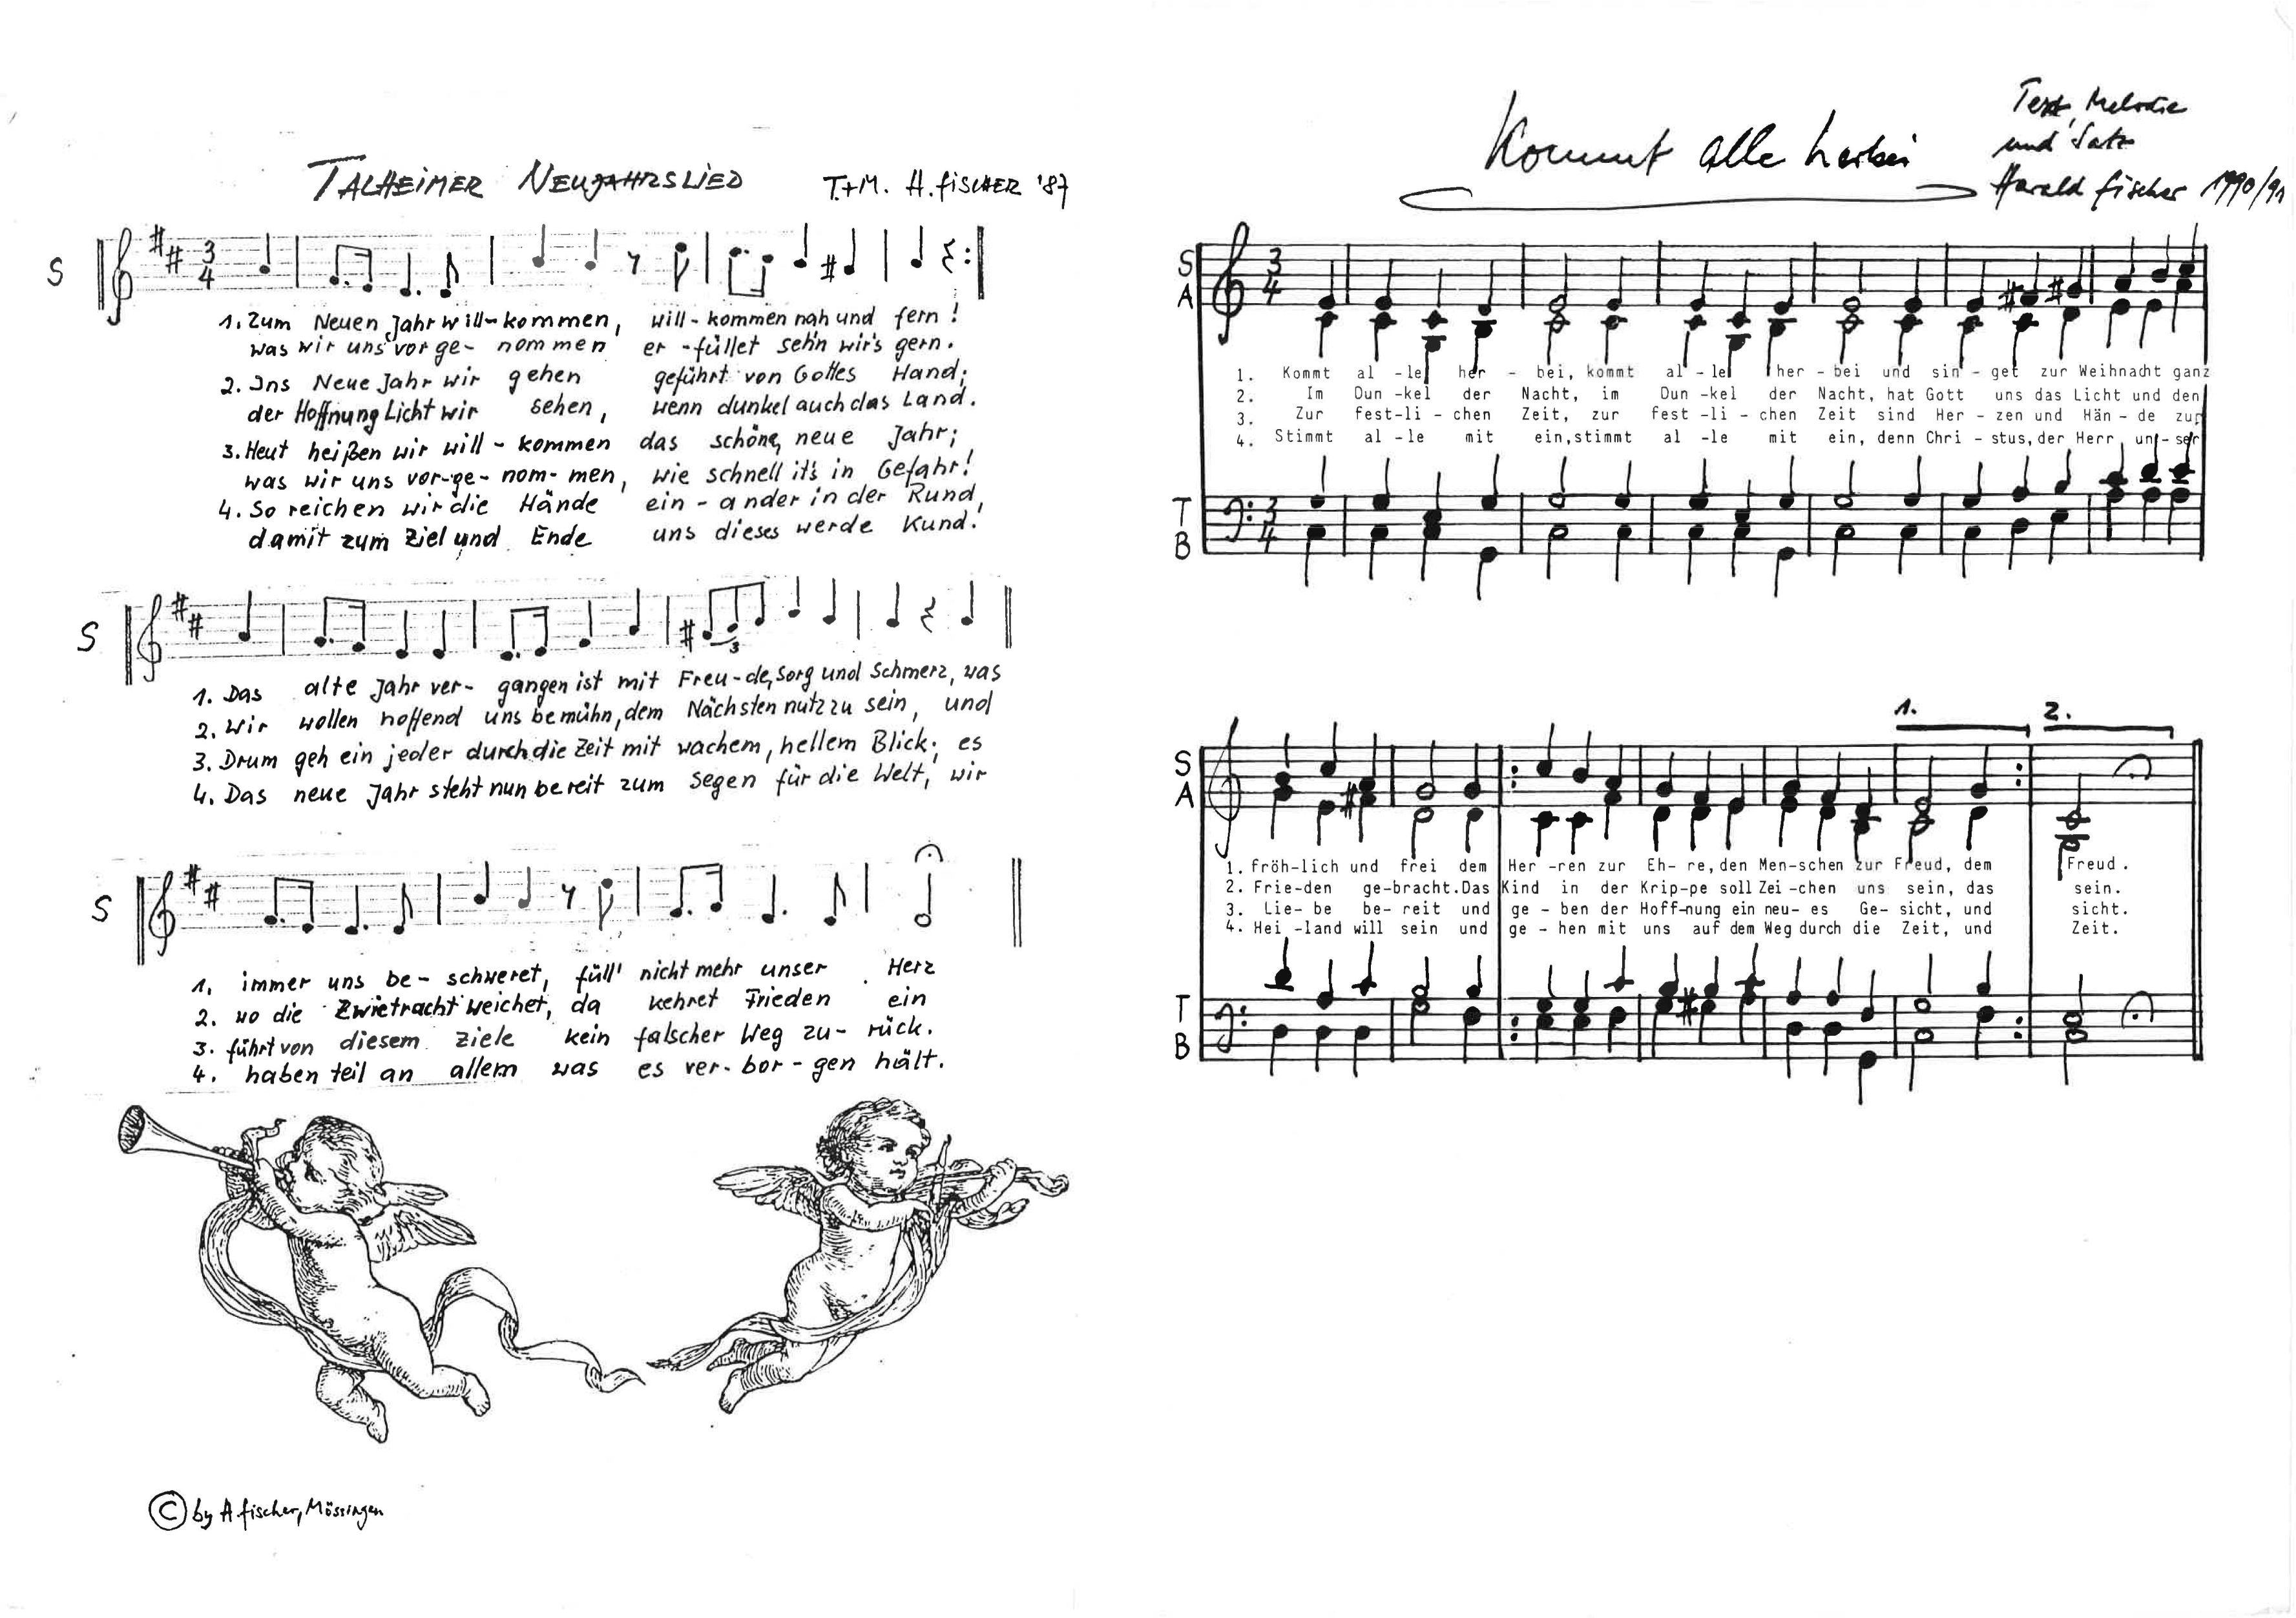 TALHEIMER NEUJAHRSLIED T.+M. H. FISCHER '87
S
3
4
1. Zum Neuen Jahr will-kommen, will-kommen nah und fern!
was wir uns vor ge- nommen er-füllet seh'n wir's gern.
2. Ins Neue Jahr wir gehen geführt von Gottes Hand;
der Hoffnung Licht wir sehen, wenn dunkel auch das Land.
3. Heut heißen wir will-kommen das schöne, neue Jahr;
was wir uns vor-ge-nom-men, wie schnell it's in Gefahr!
4. So reichen wir die Hände ein-ander in der Rund,
damit zum Ziel und Ende uns dieses werde Kund!
S
3
1. Das alte Jahr ver- gangen ist mit Freu-de, Sorg und Schmerz, was
2. Wir wollen hoffend uns bemühn, dem Nächsten nutz zu sein, und
3. Drum geh ein jeder durch die Zeit mit wachem, hellem Blick; es
4. Das neue Jahr steht nun bereit zum Segen für die Welt, wir
S
1. immer uns be- schweret, füll' nicht mehr unser Herz
2. wo die Zwietracht weichet, da kehret Frieden ein
3. führt von diesem Ziele kein falscher Weg zu- rück.
4. haben teil an allem was es ver-bor-gen hält.
© by H. Fischer, Mössingen
Kommt alle herbei
Text, Melodie
und Satz
Harald Fischer 1990/91
S
A
3
4
1. Kommt al -le her - bei, kommt al - le her - bei und sin - get zur Weihnacht ganz
2. Im Dun -kel der Nacht, im Dun -kel der Nacht, hat Gott uns das Licht und den
3. Zur fest-li - chen Zeit, zur fest -li - chen Zeit sind Her - zen und Hän - de zur
4. Stimmt al -le mit ein,stimmt al -le mit ein, denn Chri - stus, der Herr, un - ser
T
B
3
4
1. 2.
S
A
1. fröh-lich und frei dem Her -ren zur Eh- re, den Men-schen zur Freud, dem Freud.
2. Frie-den ge-bracht. Das Kind in der Krip-pe soll Zei -chen uns sein, das sein.
3. Lie- be be- reit und ge - ben der Hoff-nung ein neu- es Ge- sicht, und sicht.
4. Hei -land will sein und ge - hen mit uns auf dem Weg durch die Zeit, und Zeit.
T
B